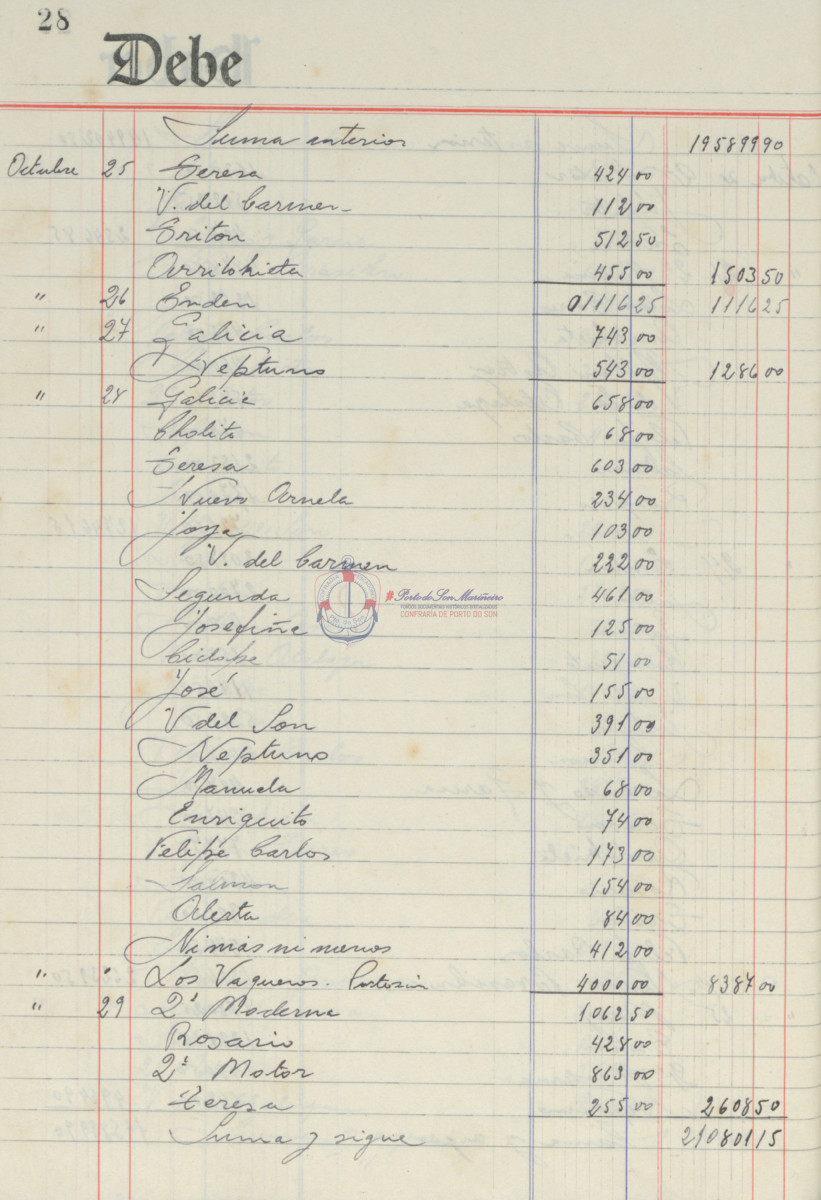 28
Debe
Suma anterior 19589990
Octubre 25 Teresa 424 00
V. del Carmen 112 00
Triton 512 50
Arritokieta 455 00 1503 50
" 26 Emden 01116 25 1116 25
" 27 Galicia 743 00
Neptuno 543 00 1286 00
" 28 Galicia 658 00
Cholito 68 00
Teresa 603 00
Nuevo Arnela 234 00
Joya 103 00
V. del Carmen 222 00
Segunda 461 00
Josefiña 125 00
Ciclope 51 00
José 155 00
V del Son 391 00
Neptuno 351 00
Manuela 68 00
Enriquito 74 00
Felipe Carlos 173 00
Salmon 154 00
Alerta 84 00
Ni más ni menos 412 00
" " Los Vaqueros. Portosin 4000 00 8387 00
" 29 2ª Moderna 1062 50
Rosario 428 00
2ª Motor 863 00
Teresa 255 00 2608 50
Suma y sigue 21080115
COFRADIA PESCADORES
Pto. do Son
#Porto do Son Mariñeiro
FONDOS DOCUMENTAIS HISTÓRICOS DIXITALIZADOS
CONFRARÍA DE PORTO DO SON